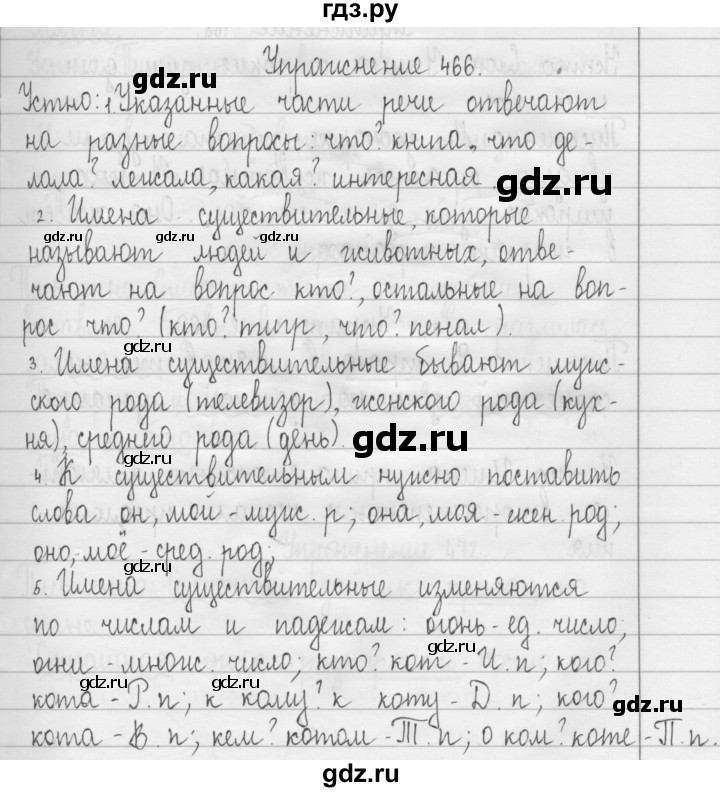 гдз.ру
Упражнение 466.
Устно: 1. Указанные части речи отвечают
на разные вопросы: что? книга, что де-
лала? лежала, какая? интересная.
2. Имена существительные, которые
называют людей и животных, отве-
чают на вопрос кто?, остальные на воп-
рос что? (кто? тигр, что? пенал).
3. Имена существительные бывают муж-
ского рода (телевизор), женского рода (кух-
ня), среднего рода (день).
4. К существительным нужно поставить
слова он, мой - муж. р; она, моя - жен. род;
оно, моё - сред. род;
5. Имена существительные изменяются
по числам и падежам: огонь - ед. число,
огни - множ. число, кто? кот - И. п; кого?
кота - Р. п; к кому? к коту - Д. п; кого?
кота - В. п; кем? котом - Т. п; о ком? коте - П. п.
gdz.ru
gdz.ru
gdz.ru
gdz.ru
gdz.ru
gdz.ru
gdz.ru
gdz.ru
gdz.ru
gdz.ru
gdz.ru
gdz.ru
gdz.ru